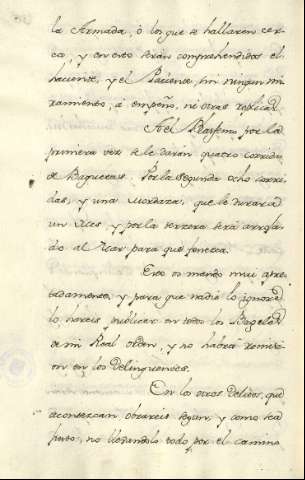 la Armada, ó los que se hallaren cer-
ca, y en esto serán comprehendidos el
haciente, y el Paciente, sin ningun mi-
ramiento, á empeño, ni otras replicas.
Si el Blasfemo por la
primera vez se le darán quatro corridas
de Baquetas. Por la segunda ocho corri-
das, y una mordaza, que le durará
un Mes, y por la tercera será arroja-
do al Mar para que fenezca.
Esto os mando mui apre-
tadamente, y para que nadie lo ignore
lo hareis publicar en todos los Bageles
de mi Real orden, y no habrá remisi-
on en los Delinquentes.
En los otros Delitos, que
acontezcan obrareis segun, y como sea
justo, no llevandolo todo por el camino